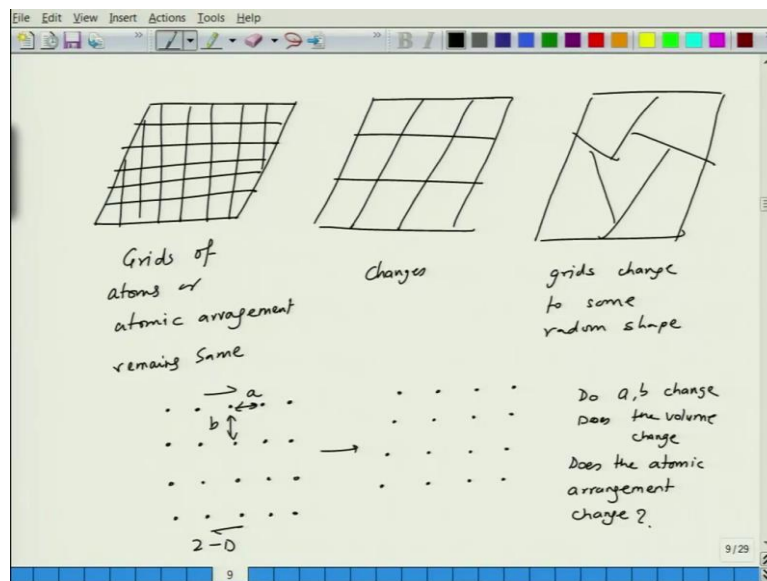 File Edit View Insert Actions Tools Help
B I
Grids of
atoms or
atomic arragement
remains same
Changes
grids change
to some
radom shape
a
b
2-D
Do a,b change
Does the volume
change
Does the atomic
arrangement
change?
9/29
9